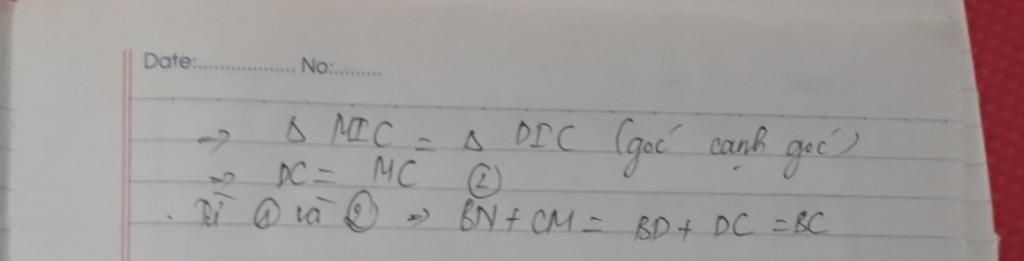 Date:.................. No:.........
→ Δ MIC = Δ DIC (góc cạnh góc)
⇒ DC = MC ②
. Từ ① và ② ⇒ BN + CM = BD + DC = BC